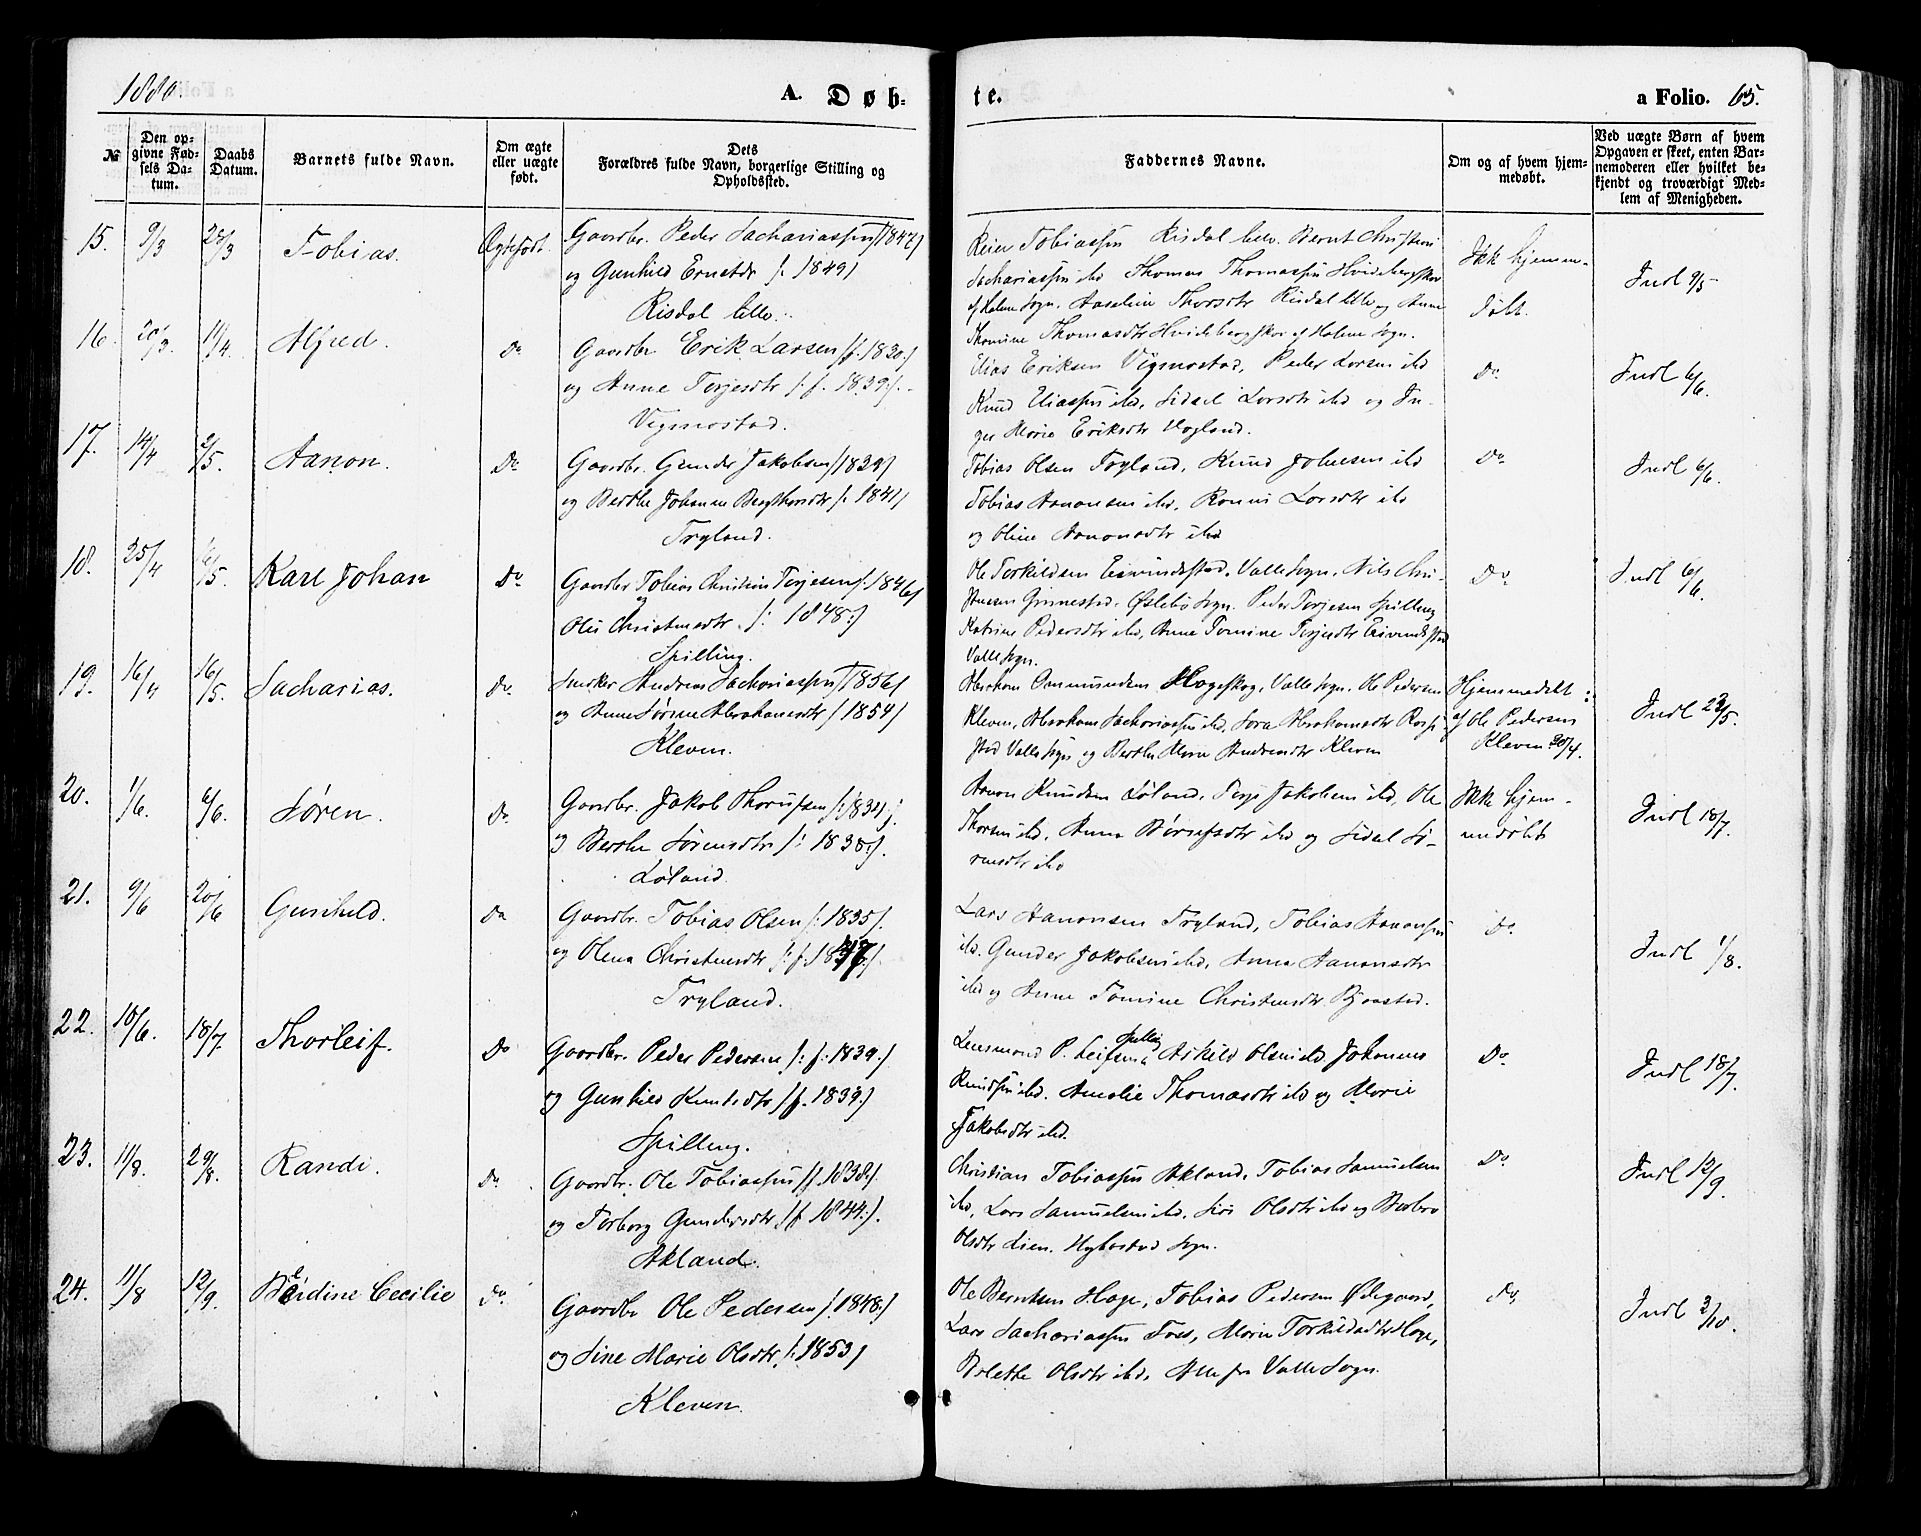 1880.
A. Døb-
te.
a Folio. 65.
№
Den op-
givne Fød-
sels Da-
tum.
Daabs
Datum.
Barnets fulde Navn.
Om ægte
eller uægte
født.
Dets
Forældres fulde Navn, borgerlige Stilling og
Opholdssted.
Faddernes Navne.
Om og af hvem hjem-
medøbt.
Ved uægte Børn af hvem
Opgaven er skeet, enten Bar-
nemoderen eller hvilket be-
kjendt og troværdigt Med-
lem af Menigheden.
15. 9/3 Tobias. Ægtefødt.
Gaardbr. Peder Sachariassen 1847
og Gunhild Erntsdtr /: 1849/
Risdal
Reier Tobiassen Risdal Bernt Christian
Sachariassen ibd Thomas Thomassen
af Holme Sogn. Aaseline Risdal og Anne
Thomine Thomasdtr af Holme Sogn.
Ikk hjemm-
døbt.
Indl 9/5
16. 11/4. Alfred. Do
Gaardbr Erik Larsen /f. 1830:/
og Anne Terjesdtr /: f. 1839:/.
Vigmostad.
Elias Eriksen Vigmostad, Peder Larsen ibd
Knud Eliassen ibd, Sidsel Larsdtr ibd og In-
ger Marie Eriksdtr
Do
Indl 6/6.
17. 14/4 2/5. Aanon. Do
Gaardbr. Gunder Jakobsen 1839/
og Berthe Johanne /: 1841/
Tryland.
Tobias Olsen Tryland, Knud Johnsen ibd
Tobias Aanonsen ibd, Larsdtr ibd
og Oline Aanonsdtr ibd
Do
Indl 6/6.
18. 25/4 16/5. Karl Johan Do
Gaardbr Tobias Christian Terjesen /: 1846/
og
Christensdtr. /: 1848:/
Spilling.
Ole Torkildsen Eivindestad, Valle Sogn, Nils Chri-
stensen Ginnestad, Øslebø Sogn. Peder Terjesen Spilling
Katrine Pedersdtr ibd, Anne Tomine Terjesdtr Eivindestad
Valle Sogn.
Do
Indl 6/6
19. 16/4 16/5. Sacharias. Do
Andreas Sachariassen 1856/
og Anne Sørine Abrahamsdtr / 1854/
Kleven.
Abraham Ommundsen Hageskog, Valle Sogn. Ole Pedersen
Kleven, Abraham Sachariassen ibd, Sara Abrahamsdtr
stad Valle Sogn og Berthe Marie Andreasdtr Kleven
Hjemmedøbt
af Ole Pedersen
Kleven 20/4.
Indl 23/5.
20. 1/6. 6/6. Søren. Do
Gaardbr. Jakob 1834:/
og Berthe Sørensdtr /: 1838:/.
Løland.
Aanon Knudsen Løland, Terje Jakobsen ibd, Ole
Thorsen ibd, Anna ibd og Sidsel Sø-
rensdtr ibd
Ikke hjem-
medøbt
Indl 18/7.
21. 9/6 20/6 Gunhild. Do
Gaardbr. Tobias Olsen /: 1835/.
og Olena Christensdtr /: f.
Tryland.
Lars Aanonsen Tryland, Tobias Aanonsen
ibd. Gunder Jakobsen ibd, Anna Aanonsdtr
ibd og Anne Tomine Christensdtr
Do
Indl 1/8.
22. 10/6. 18/7. Thorleif. Do
Gaardbr. Peder Pedersen /: f: 1839:/
og Gunhild Knudsdtr /f. 1839:/
Spilling.
Spilling
Lensmand P. Leifsen Askild Olsen ibd Johannes
Knudsen ibd. Amalie Thomasdtr ibd og Marie
Jakobsdtr ibd.
Do
Indl 18/7.
23. 11/8. 29/8. Randi. Do
Gaardbr. Ole Tobiassen /f. 1838:/.
og Torborg Gundersdtr /f 1844:/.
Akland.
Christian Tobiassen Akland, Tobias Samuelsen
ibd, Lars Samuelsen ibd, Siri Olsdtr ibd og Barbro
Olsdtr Lien, Sogn.
Do
Indl 12/9.
24. 11/8 12/9. Cecilie Do
Gaardbr Ole Pedersen /: 1848:/
og Sine Marie Olsdtr /: 1853/
Kleven.
Ole Berntsen Hage, Tobias Pedersen Ødegaard,
Lars Sachariassen Foss, Marie Torkildsdtr Hage,
Olsdtr ibd, Alle fra Valle Sogn.
Do
Indl 3/10.